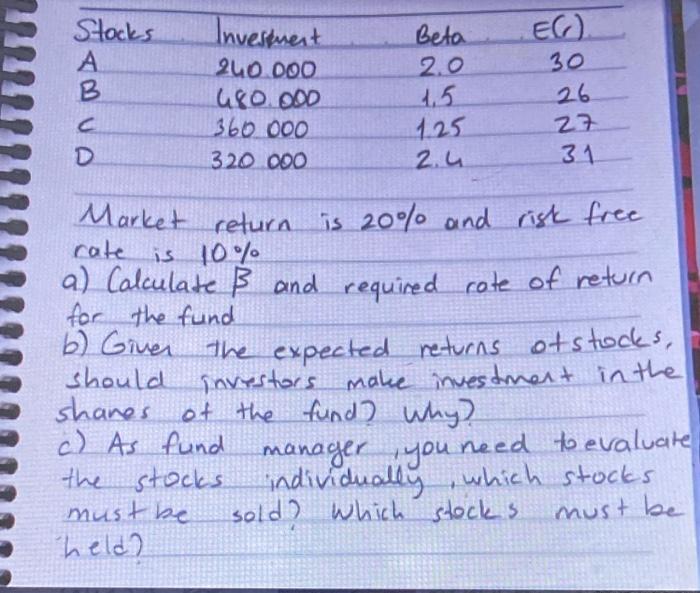 Stocks Investment Beta E(r)
A 240.000 2.0 30
B 480.000 1.5 26
C 360 000 1.25 27
D 320 000 2.4 31
Market return is 20% and risk free
rate is 10%
a) Calculate β and required rate of return
for the fund
b) Given the expected returns of stocks,
should investors make investment in the
shares of the fund? Why?
c) As fund manager, you need to evaluate
the stocks individually, which stocks
must be sold? Which stocks must be
held?